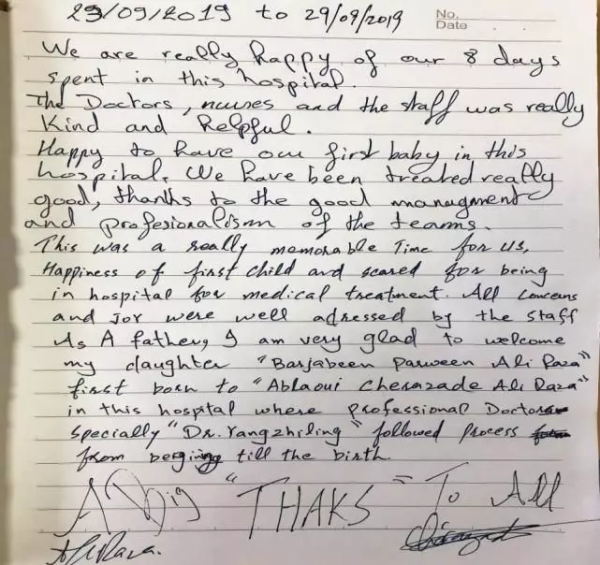 23/09/2019 to 29/09/2019
No.
Date
We are really happy of our 8 days
spent in this hospital.
The Doctors, nurses and the staff was really
Kind and helpful.
Happy to have our first baby in this
hospital. We have been treated really
good, thanks to the good managment
and profesionalism of the teams.
This was a really memorable Time for us,
Happiness of first child and scared for being
in hospital for medical treatment. All concerns
and Joy were well adressed by the staff
As A father, I am very glad to welcome
my daughter "Barjabeen Parween Ali Raza"
first born to "Ablaoui Cherazade Ali Raza"
in this hospital where professional Doctors
specially "Dr. Yangzhiling" followed process
from bergining till the birth
A Big "THAKS" To All
Ali Raza.